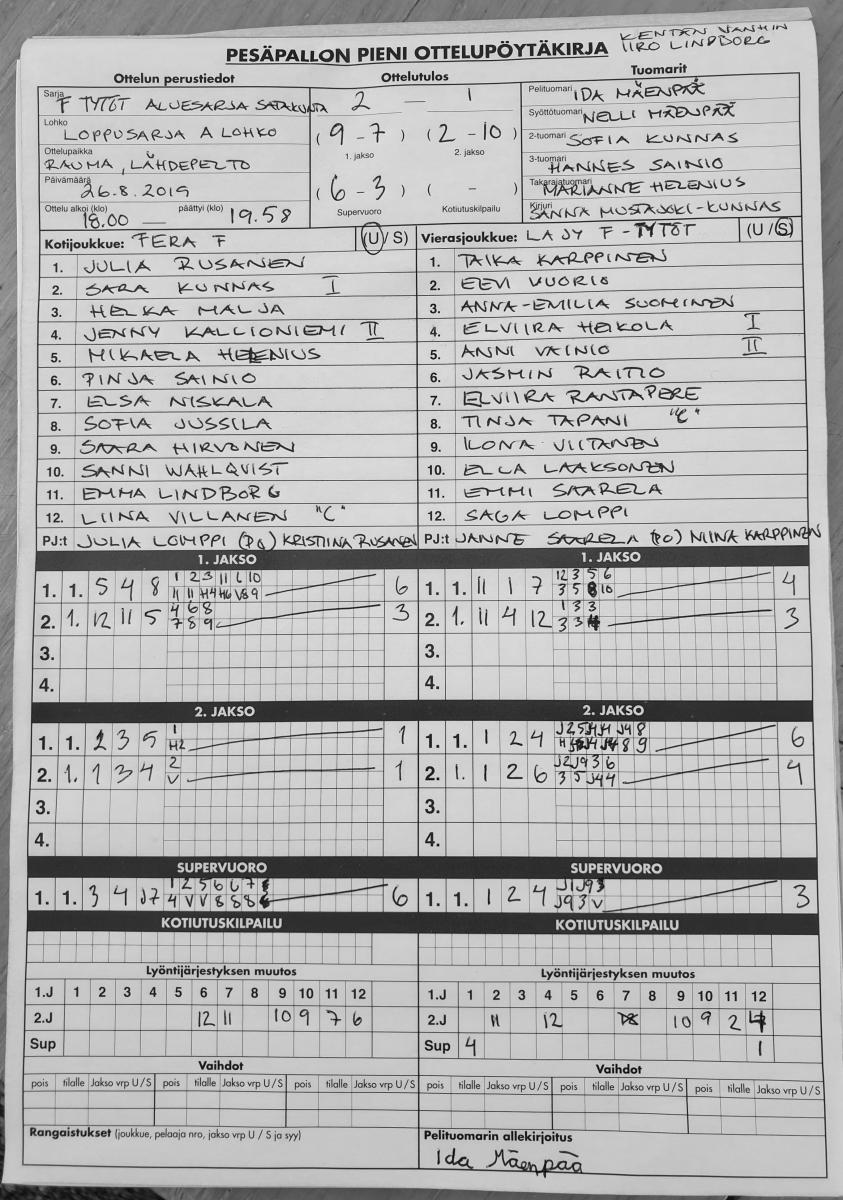 KENTÄN VANHIN
IIRO LINDBORG
PESÄPALLON PIENI OTTELUPÖYTÄKIRJA
Ottelun perustiedot
Sarja F TYTÖT ALUESARJA SATAKUNTA
Lohko LOPPUSARJA A LOHKO
Ottelupaikka RAUMA, LÄHDEPELTO
Päivämäärä 26.8.2019
Ottelu alkoi (klo) 18.00 — päättyi (klo) 19.58
Ottelutulos
2 — 1
(9-7) (2-10)
1. jakso 2. jakso
(6-3) ( - )
Supervuoro Kotiutuskilpailu
Tuomarit
Pelituomari IDA MÄENPÄÄ
Syöttötuomari NELLI MÄENPÄÄ
2-tuomari SOFIA KUNNAS
3-tuomari HANNES SAINIO
Takarajatuomari MARIANNE HELENIUS
Kirjuri SANNA MUSTAJOKI-KUNNAS
Kotijoukkue: FERA F (U/S)
1. JULIA RUSANEN
2. SARA KUNNAS I
3. HELKA MALJA
4. JENNY KALLIONIEMI II
5. MIKAELA HELENIUS
6. PINJA SAINIO
7. ELSA NISKALA
8. SOFIA JUSSILA
9. SAARA HIRVONEN
10. SANNI WAHLQVIST
11. EMMA LINDBORG
12. LIINA VILLANEN "C"
PJ:t JULIA LOMPPI (PO) KRISTIINA RUSANEN
Vierasjoukkue: LAJY F-TYTÖT (U/S)
1. TAIKA KARPPINEN
2. EEVI VUORIO
3. ANNA-EMILIA SUOMINEN
4. ELVIIRA HEIKOLA I
5. ANNI VAINIO II
6. JASMIN RAITIO
7. ELVIIRA RANTAPERE
8. TINJA TAPANI "C"
9. ILONA VIITANEN
10. ELLA LAAKSONEN
11. EMMI SAARELA
12. SAGA LOMPPI
PJ:t JANNE SAARELA (PO) NIINA KARPPINEN
1. JAKSO
1. 1. 5 4 8 1 2 3 11 6 10 6
11 11 H4 H6 V8 9
2. 1. 12 11 5 4 6 8 3
7 8 9
3.
4.
1. JAKSO
1. 1. 11 1 7 12 3 5 6 4
3 5 8 10
2. 1. 11 4 12 1 3 3 3
3 3
3.
4.
2. JAKSO
1. 1. 2 3 5 1 1
H2
2. 1. 1 3 4 2 1
V
3.
4.
2. JAKSO
1. 1. 1 2 4 J2 5 J4 J4 J9 8 6
8 9
2. 1. 1 2 6 J2 J9 3 6 4
3 5 J4 4
3.
4.
SUPERVUORO
1. 1. 3 4 J7 1 2 5 6 6 7 6
4 V V 8 8 8
SUPERVUORO
1. 1. 1 2 4 J1 J9 3 3
J9 3 V
KOTIUTUSKILPAILU
KOTIUTUSKILPAILU
Lyöntijärjestyksen muutos
1.J 1 2 3 4 5 6 7 8 9 10 11 12
2.J 12 11 10 9 7 6
Sup
Lyöntijärjestyksen muutos
1.J 1 2 3 4 5 6 7 8 9 10 11 12
2.J 11 12 10 9 2
Sup 4 1
Vaihdot
pois tilalle Jakso vrp U/S pois tilalle Jakso vrp U/S pois tilalle Jakso vrp U/S
Vaihdot
pois tilalle Jakso vrp U/S pois tilalle Jakso vrp U/S pois tilalle Jakso vrp U/S
Rangaistukset (joukkue, pelaaja nro, jakso vrp U / S ja syy)
Pelituomarin allekirjoitus
Ida Mäenpää